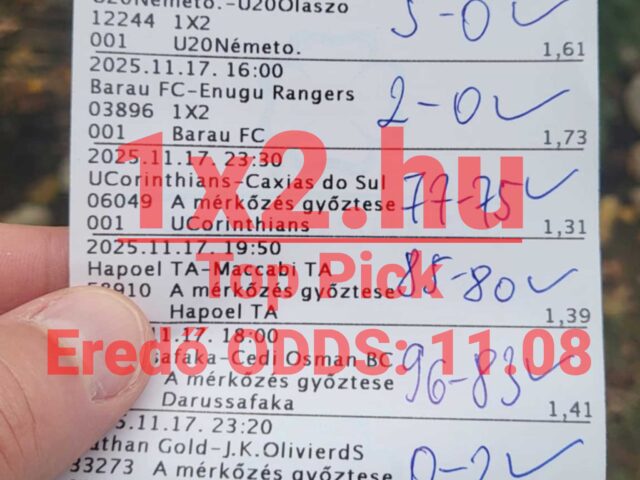 U20Németo.-U20Olaszo
12244 1X2
5-0 ✓
001 U20Németo. 1,61
2025.11.17. 16:00
Barau FC-Enugu Rangers
03896 1X2
2-0 ✓
001 Barau FC 1,73
1x2.hu
2025.11.17. 23:30
UCorinthians-Caxias do Sul
06049 A mérkőzés győztese
77-75 ✓
001 UCorinthians 1,31
Top Pick
2025.11.17. 19:50
Hapoel TA-Maccabi TA
58910 A mérkőzés győztese
85-80 ✓
Hapoel TA 1,39
Eredő ODDS: 11.08
11.17. 18:00
safaka-Cedi Osman BC
A mérkőzés győztese
96-83 ✓
Darussafaka 1,41
11.17. 23:20
athan Gold-J.K.OlivierdS
33273 A mérkőzés győztese
0-2 ✓